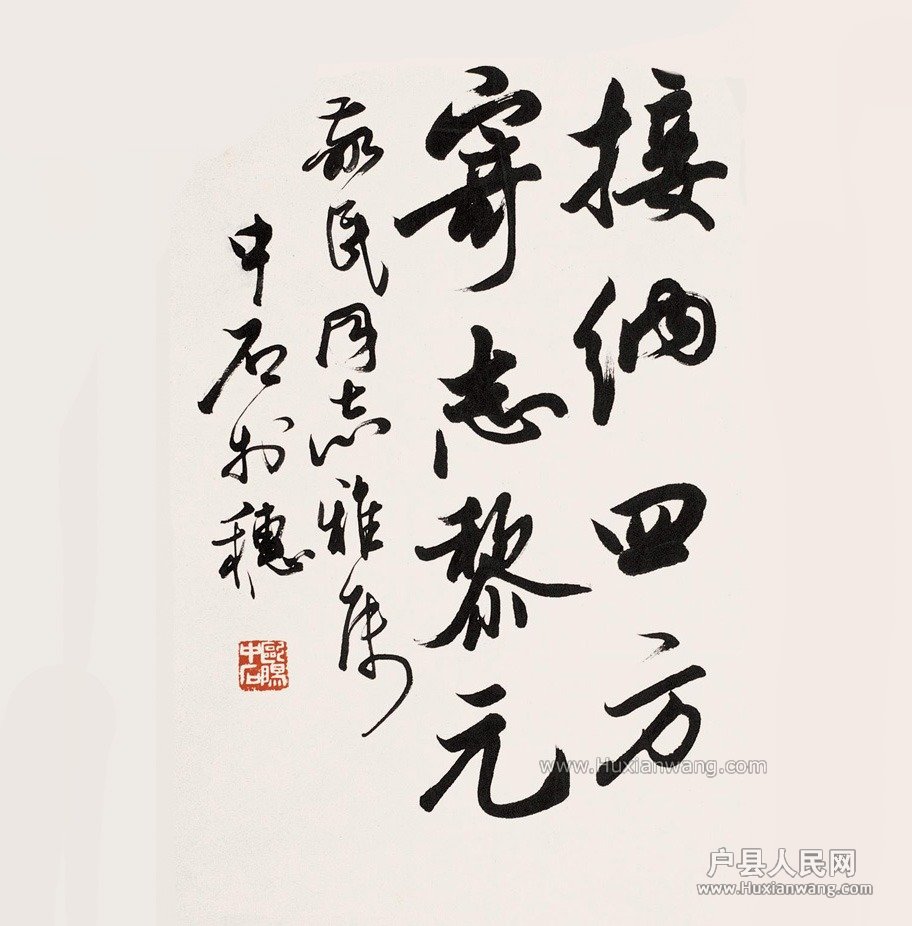 接纳四方
寄志黎元
敬民同志雅属
中石於穗
歐陽中石
www.Huxianwang.com
户县人民网
www.Huxianwang.com